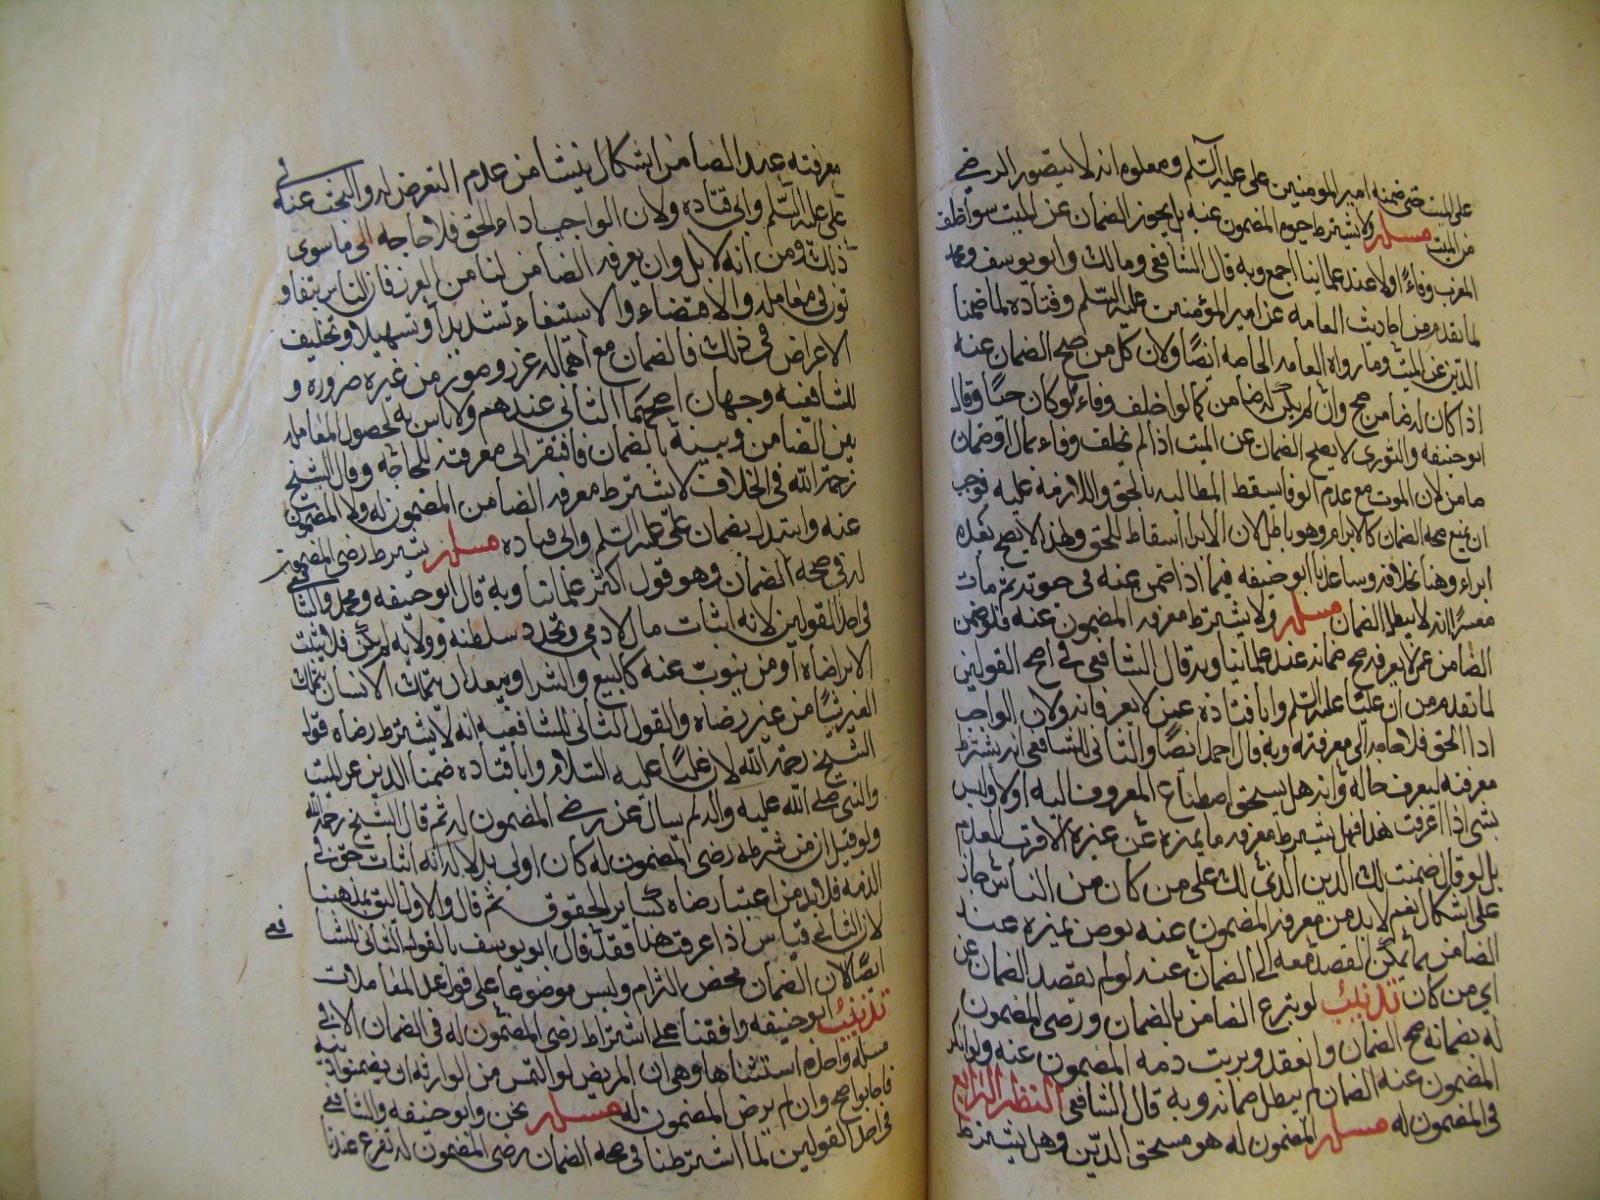 على الميت حتى ضمنه امير المؤمنين على عليه السلم ومعلوم انه لا يتصور الرضى
من الميت مسئلة ولا يشترط حيوة المضمون عنه بل يجوز الضمان عن الميت سواء خلف
المعرب وفاءً اولا عند علمائنا اجمع وبه قال الشافعى ومالك وابو يوسف ومحمد
لما تقدم من احاديث العامه عن امير المؤمنين عليه السلم وقتاده لما ضمنا
الدين عن الميت وما رواه العامه الخاصه ايضًا ولان كل من صح الضمان عنه
اذا كان له ضامن صح وان لم يكن له ضامن كما لو خلف وفاء ولو كان حيًا وقال
ابو حنيفه والثورى لا يصح الضمان عن الميت اذا لم يخلف وفاء بمال او ضمان
ضامن لان الموت مع عدم الوفا يسقط المطالبه بالحق والملازمه عليه فوجب
ان يمنع صحه الضمان كالابراء وهو باطل لان الابرا اسقاط للحق ولهذا لا يصح بعده
ابراء وهنا بخلافه وساعدنا ابو حنيفه فيما اذا ضمن عنه فى حيوته ثم مات
معسرًا انه لا يبطل الضمان مسئلة ولا يشترط معرفه المضمون عنه فلو ضمن
الضامن عمن لا يعرفه صح ضمانه عند علمائنا وبه قال الشافعى فى اصح القولين
لما تقدم من ان عليًا عليه السلم وابا قتاده ضمن عمن لا يعرفانه ولان الواجب
اداء الحق فلا حاجه الى معرفته وبه قال احمد ايضًا والثانى للشافعى انه يشترط
معرفته ليعرف حاله وانه هل يستحق اصطناع المعروف اليه اولا وليس
بشى اذا عرفت هذا فهل يشترط معرفه ما يميزه عن غيره الاقرب العدم
بل لو قال ضمنت لك الدين الذى لك على من كان من الناس جاز
على اشكال نعم لا بد من معرفه المضمون عنه بوصف يميزه عند
الضامن بما يمكن القصد معه الى الضمان عنه لو لم يقصد الضمان عن
اى من كان تذنيب لو تبرع الضامن بالضمان ورضى المضمون
له بضمانه صح الضمان وانعقد وبريت ذمه المضمون عنه ولو انكر
المضمون عنه الضمان لم يبطل ضمانه وبه قال الشافعى النظر الرابع
فى المضمون له مسئلة المضمون له هو مستحق الدين وهل يشترط
معرفته عند الضامن اشكال ينشا من عدم التعرض له والبحث عنه فى
على عليه السلم وابى قتاده ولان الواجب اداء الحق فلا حاجه الى ما سوى
ذلك ومن انه لا بد وان يعرفه الضامن لنا من الغرر فان الناس يتفاو
تون فى معامله والاقتضاء والاستيفاء تشديدًا وتسهيلا وتختلف
الاغراض فى ذلك فالضمان مع اهماله غرر وضرر من غيره ضروره و
للشافعيه وجهان اصحهما الثانى عندهم ولا باس به لحصول المعامله
بين الضامن وبينه بالضمان فافتقر الى معرفته للحاجه وقال الشيخ
رحمه الله فى الخلاف لا يشترط معرفه الضامن المضمون له ولا المضمون
عنه واستدل بضمان على عليه السلم وابى قتاده مسئلة يشترط رضى المضمون
له فى صحه الضمان وهو قول اكثر علمائنا وبه قال ابو حنيفه ومحمد والشافعى
فى احد القولين لانه اثبات مال لادمى وتجدد سلطنه وولايه لم يكن فلا يثبت
الا برضاه او من ينوب عنه كالبيع والشرا ويبعد ان يتملك الانسان بتمليك
الغير شيًا من غير رضاه والقول الثانى للشافعيه انه لا يشترط رضاه قول
الشيخ رحمه الله لان عليًا عليه السلام وابا قتاده ضمنا الدين عن الميت
والنبى صلى الله عليه واله لم يسال عن رضى المضمون له ثم قال الشيخ رحمه الله
ولو قيل ان من شرطه رضى المضمون له كان اولى بدلاله انه اثبات حق فى
الذمه فلا بد من اعتبار رضاه كساير الحقوق ثم قال والاول اليق بمذهبنا
لان الثانى قياس اذا عرفت هذا فقد قال ابو يوسف بالقول الثانى للشا
فعى
ايضًا لان الضمان محض التزام وليس موضوعًا على قواعد المعاملات
تذنيب ابو حنيفه وافقنا على اشتراط رضى المضمون له فى الضمان الا فى
مسله واحده استثناها وهى ان المريض لو التمس من الوارثه ان يضمنوا دينه
فاجابوا صح وان لم يرض المضمون له مسئلة نحن وابو حنيفه والشافعى
فى احد القولين لما اشترطنا فى صحه الضمان رضى المضمون له تفرع عندنا